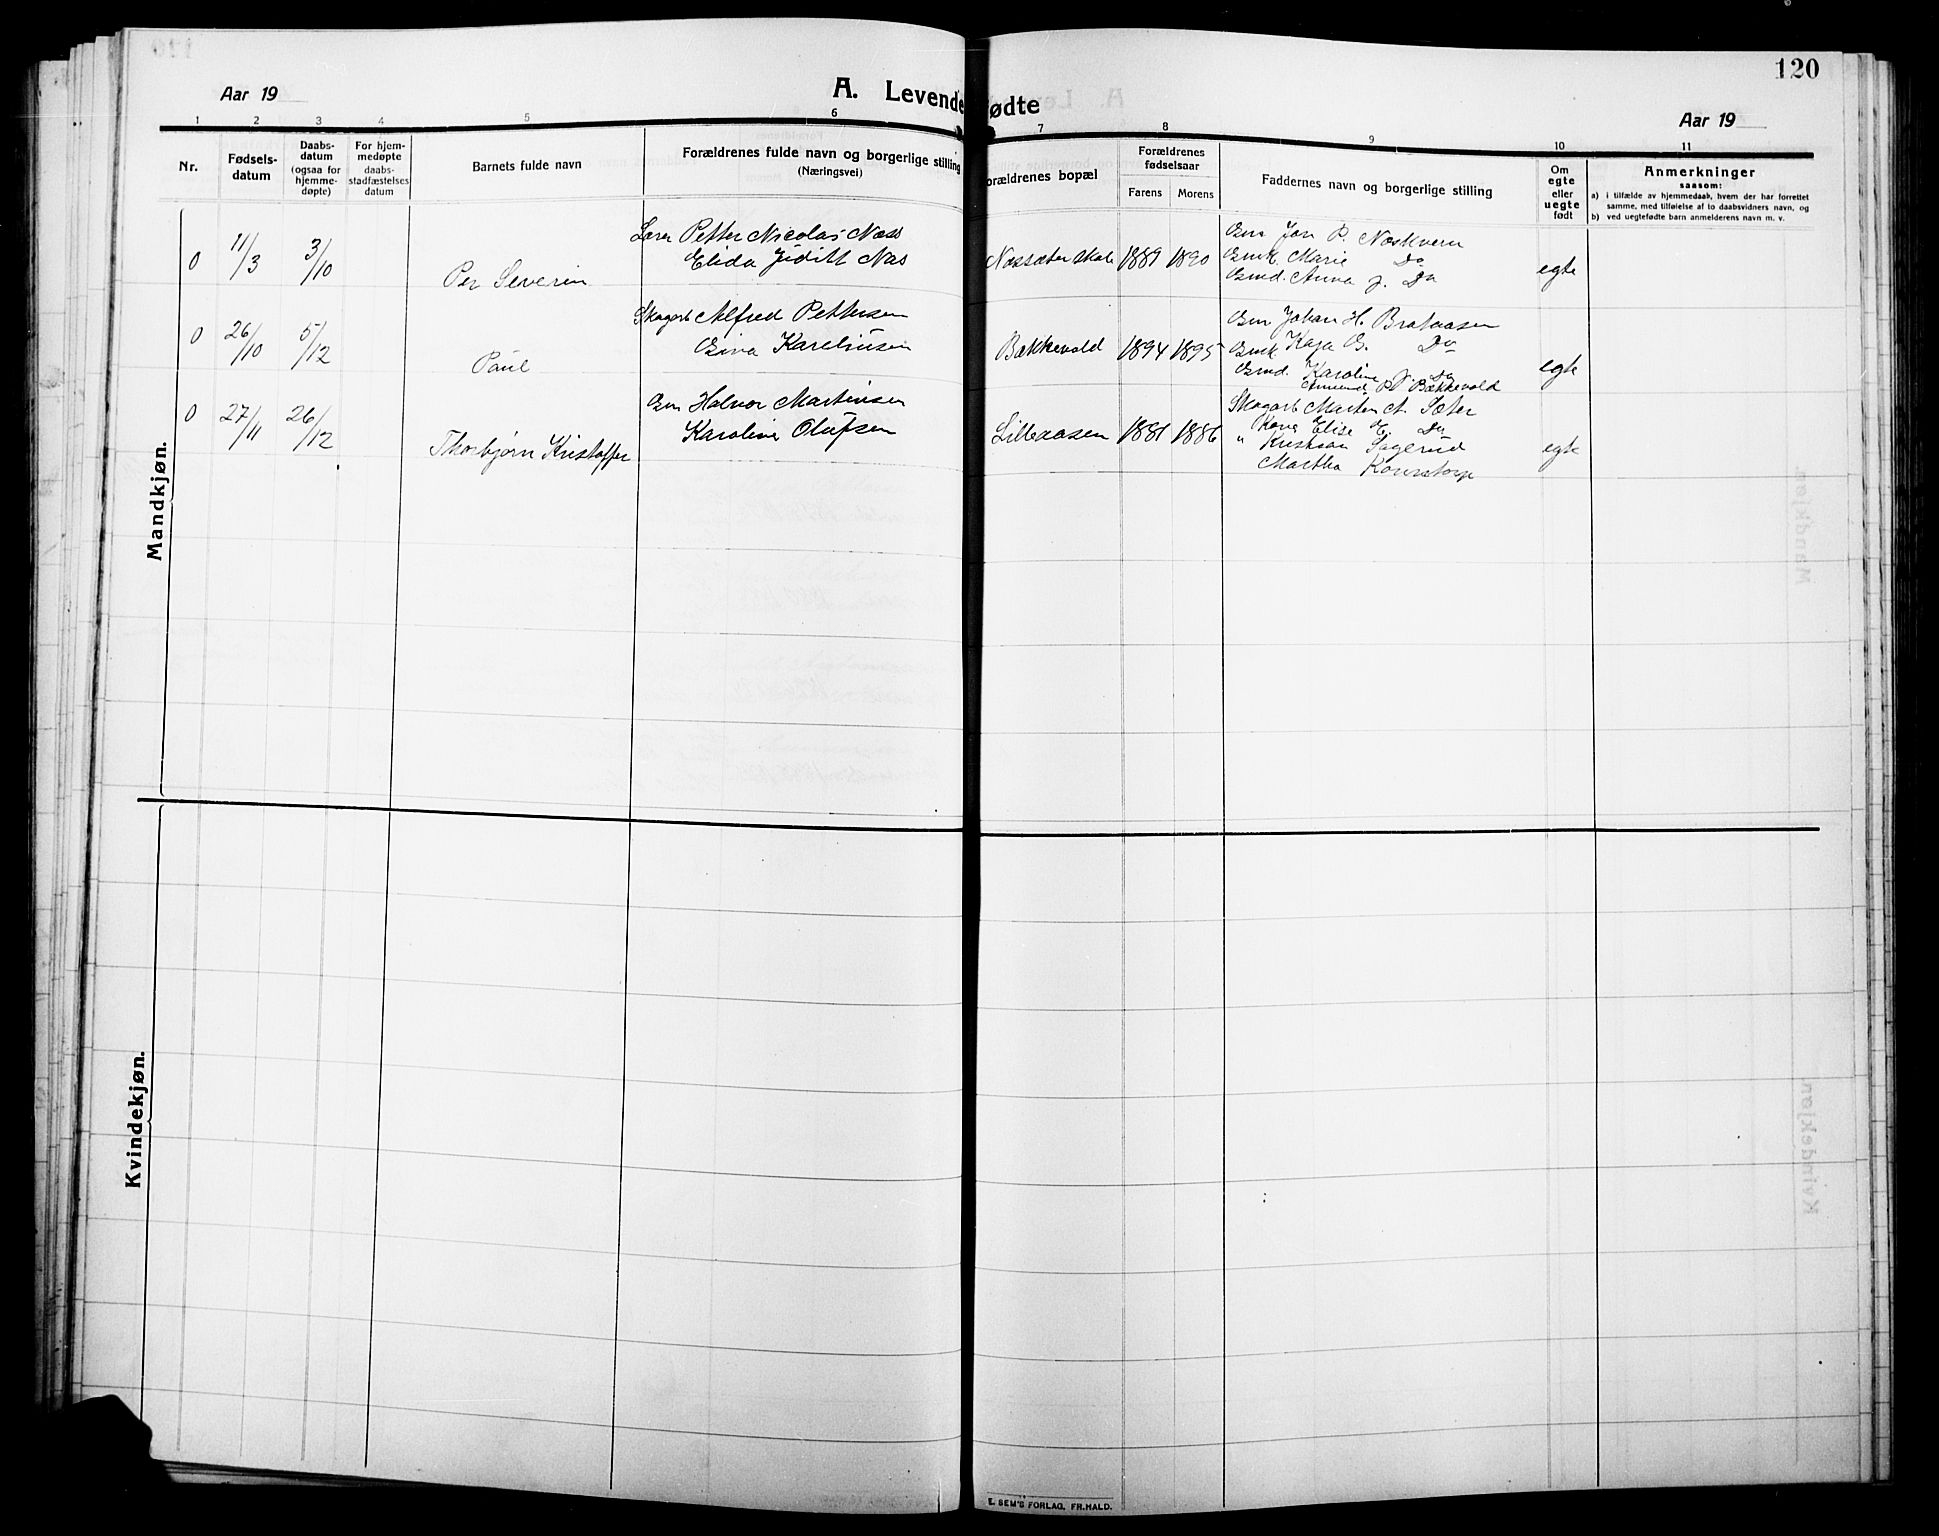 120
Aar 19
A. Levendefødte
Aar 19
1 2 3 4 5 6 7 8 9 10 11
Nr.
Fødsels-
datum
Daabs-
datum
(ogsaa for
hjemme-
døpte)
For hjem-
medøpte
daabs-
stadfæstelses
datum
Barnets fulde navn
Forældrenes fulde navn og borgerlige stilling
(Næringsvei)
orældrenes bopæl
Forældrenes
fødselsaar
Farens Morens
Faddernes navn og borgerlige stilling
Om
egte
eller
uegte
født
Anmerkninger
saasom:
a) i tilfælde av hjemmedaab, hvem der har forrettet
samme, med tilføielse af to daabsvidners navn, og
b) ved uegtefødte barn anmelderens navn m. v.
Mandkjøn.
0 11/3 3/10 Per Severin
Lærer Petter Nicolai Næss
Elida Juditt Næs
Næssæter skole 1889 1890
Gm Jon P. Næskvern
Gmk. Marie Do
Gmd. Anna J. Do
egte
0 26/10 5/12 Paul
Skogarb Alfred Pettersen
Gina Kareliusen
Bækkevold 1894 1895
Gm Johan H. Brataasen
Gmk Kaja G. Do
Gmd. Karoline J. Do
P. Bækkevold
egte
0 27/11 26/12 Thorbjørn Kristoffer
Gm Halvor Martinsen
Karoline Olufsen
Lilleaasen 1881 1886
Skogarb Marten A. Sæter
Kone Elise E. Do
" Kristian Sagerud
Martha
egte
Kvindekjøn.
E. SEM'S FORLAG, FR.HALD.